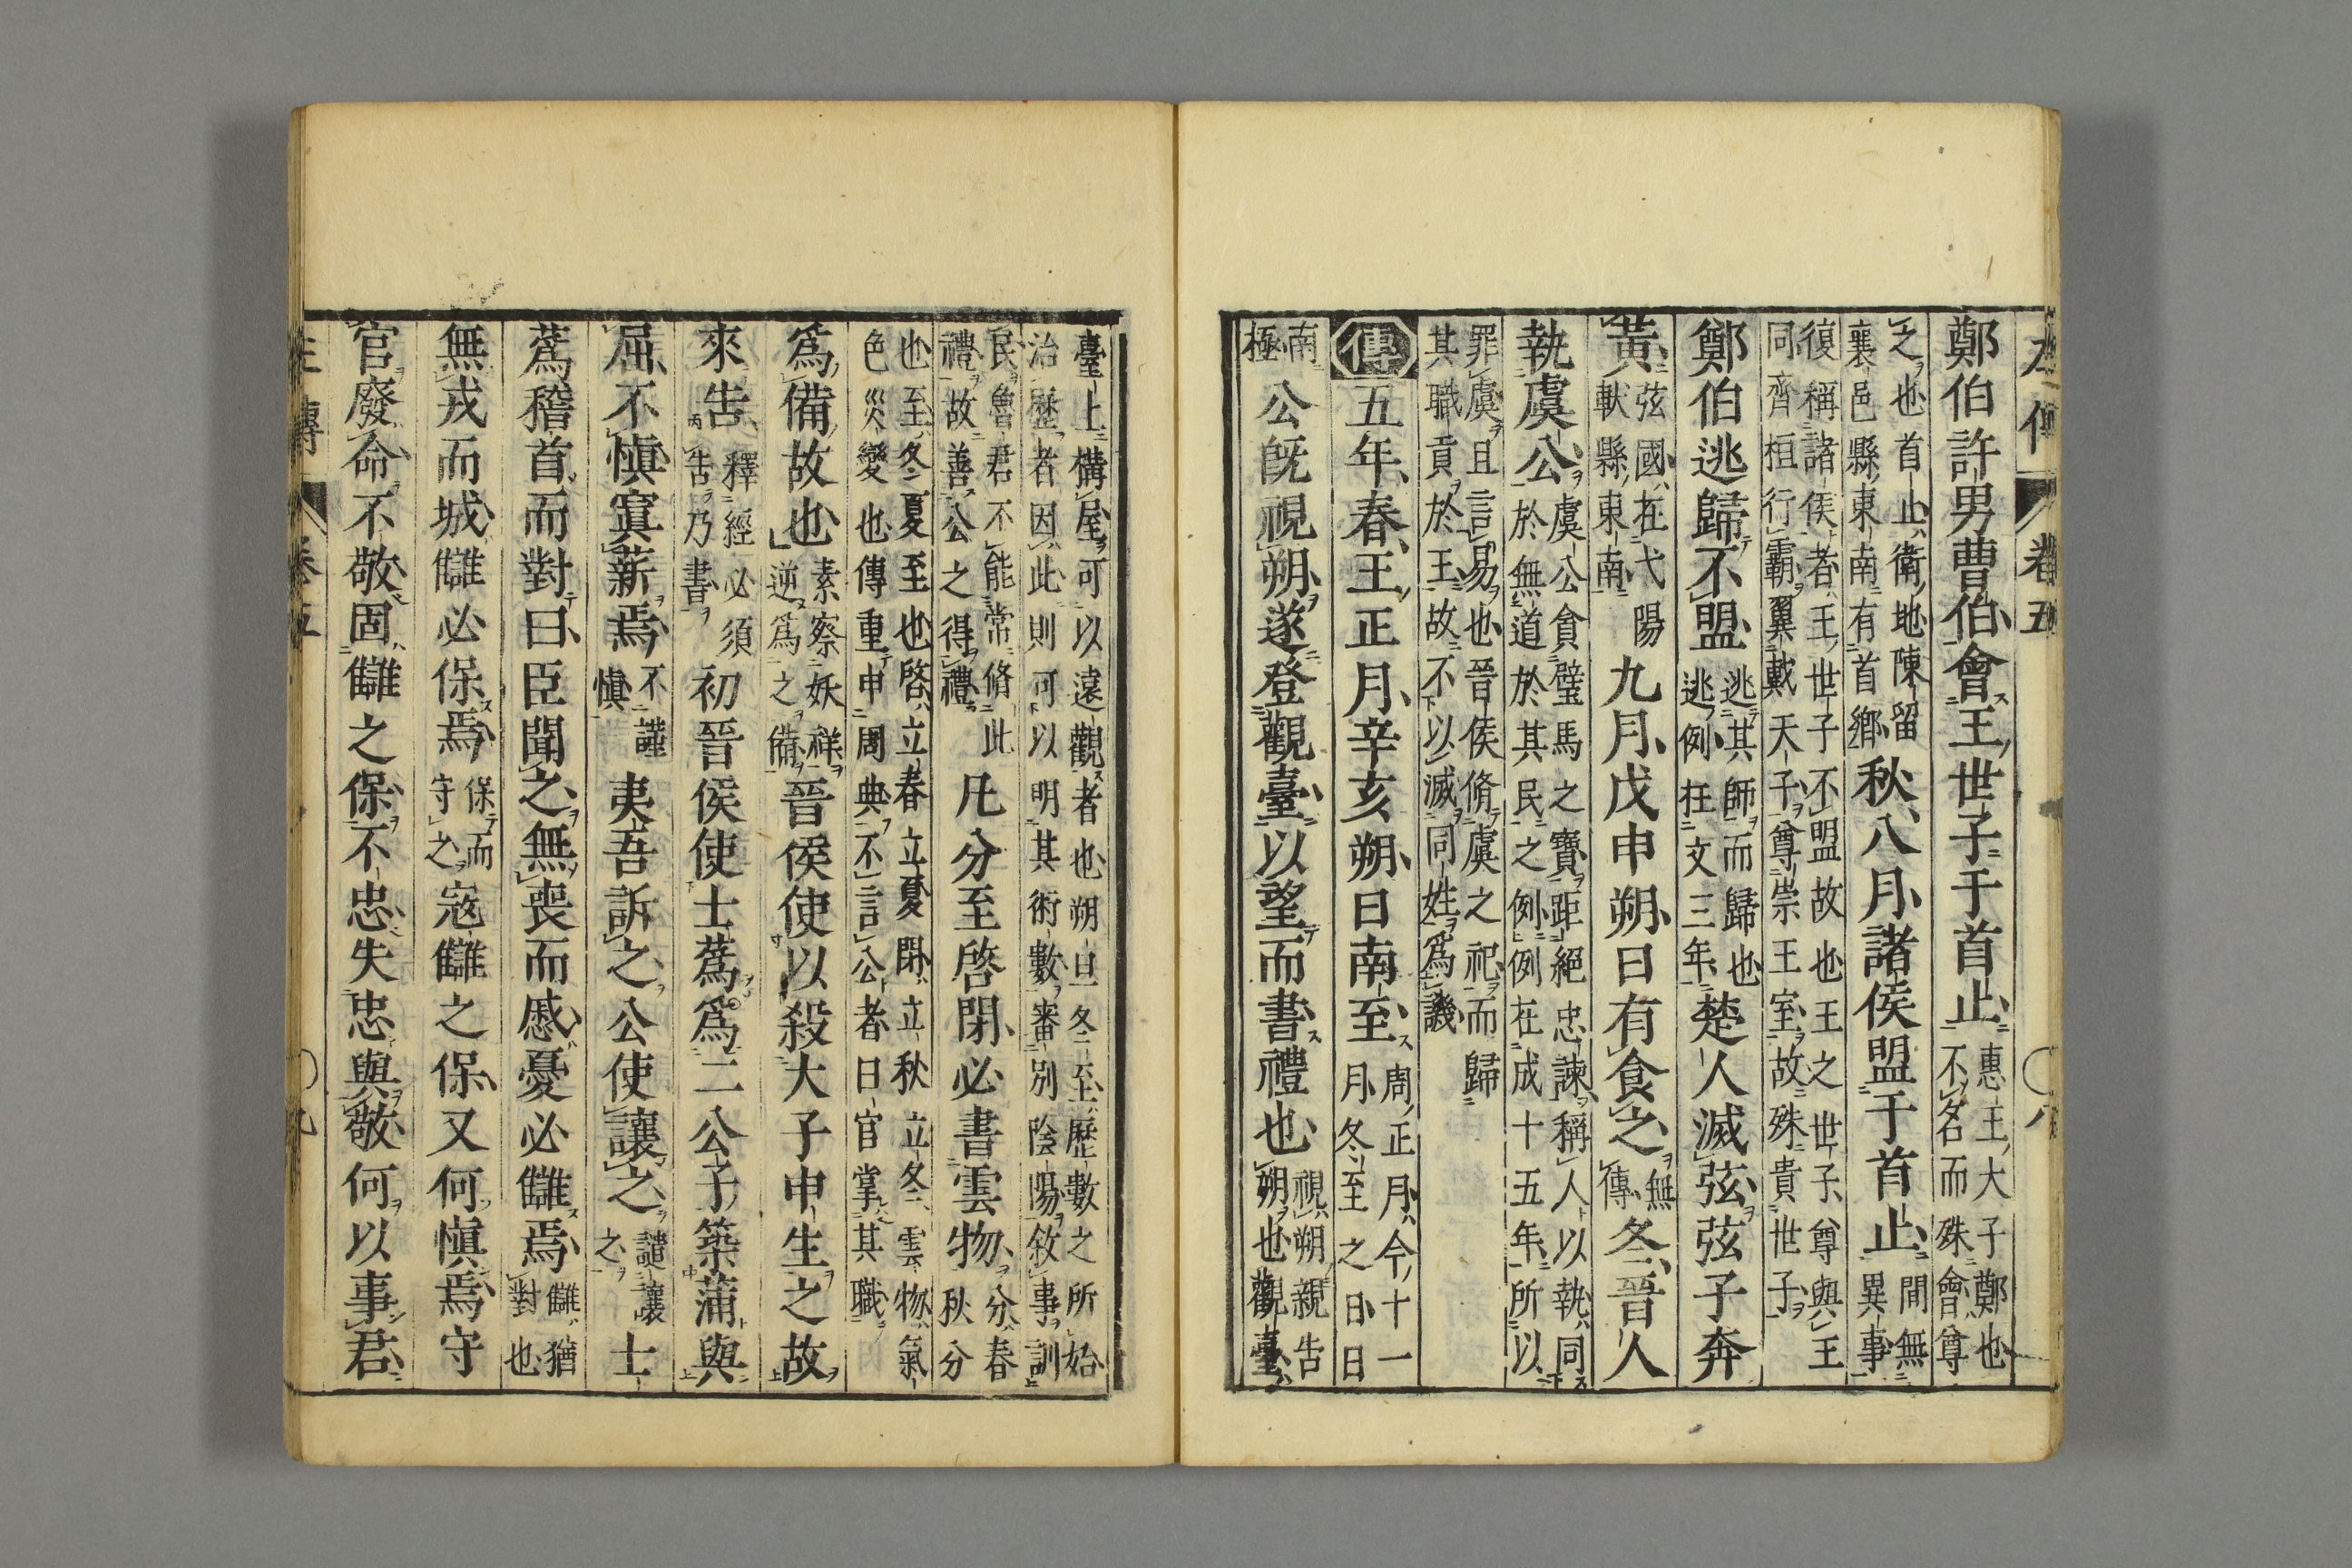 左傳 卷五 〇八
鄭伯許男曹伯會王世子于首止惠王大子鄭也不名而殊會尊
之也首止衛地陳留襄邑縣東南有首鄉秋八月諸侯盟于首止間無異事
復稱諸侯者王世子不盟故也王之世子尊與王同齊桓行霸翼戴天子尊崇王室故殊貴世子
鄭伯逃歸不盟逃其師而歸也逃例在文三年楚人滅弦弦子奔
黃弦國在弋陽軑縣東南九月戊申朔日有食之無傳冬晉人
執虞公虞公貪璧馬之寶距絕忠諫稱人以執同於無道於其民之例例在成十五年所以
罪虞且言易也晉侯脩虞之祀而歸其職貢於王故不以滅同姓為譏
傳五年春王正月辛亥朔日南至周正月今十一月冬至之日日
南極公既視朔遂登觀臺以望而書禮也視朔親告朔也觀臺
臺上構屋可以遠觀者也朔旦冬至歷數之所始治歷者因此則可以明其術數審別陰陽敘事訓
民魯君不能常脩此禮故善公之得禮凡分至啓閉必書雲物分春秋分
也至冬夏至也啓立春立夏閉立秋立冬雲物氣色災變也傳重申周典不言公者日官掌其職
爲備故也素察妖祥逆爲之備晉侯使以殺大子申生之故
來告釋經必須告乃書初晉侯使士蔿爲二公子築蒲與
屈不愼寘薪焉不謹愼夷吾訴之公使讓之譴讓之士
蔿稽首而對曰臣聞之無喪而慼憂必讎焉讎猶對也
無戎而城讎必保焉保而守之寇讎之保又何愼焉守
官廢命不敬固讎之保不忠失忠與敬何以事君
左傳 卷五 〇九